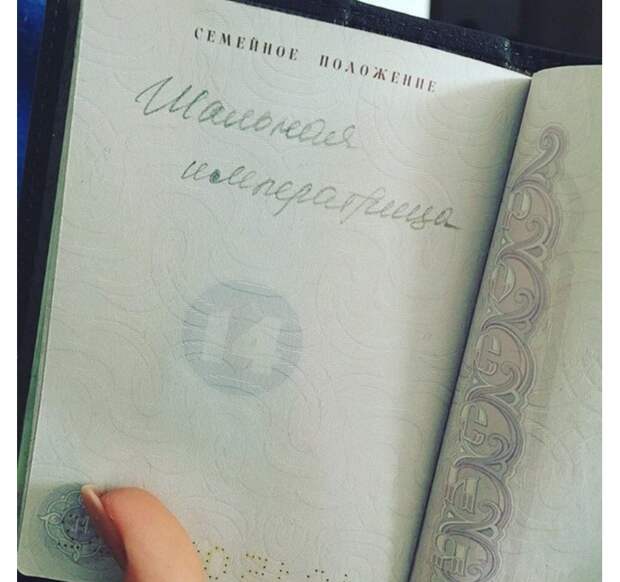 СЕМЕЙНОЕ ПОЛОЖЕНИЕ
Шальная
императрица
14